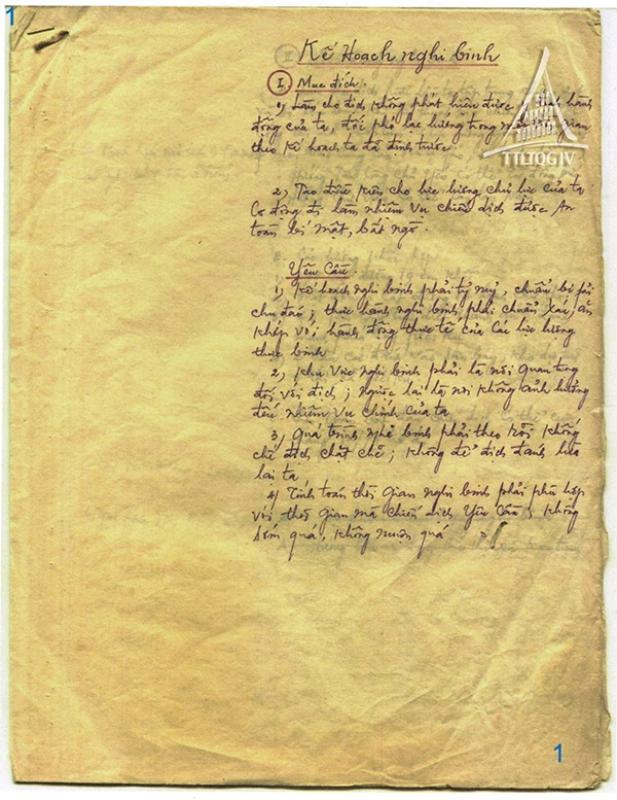 1
Kế Hoạch nghi binh
I, Mục đích:
1, Làm cho địch không phát hiện được hành
động của ta, đối phó lạc hướng trong gian
theo kế hoạch ta đã định trước
TTLTQG IV
2, Tạo điều kiện cho lực lượng chủ lực của ta
Cơ động đi làm nhiệm vụ chiến dịch được An
toàn bí mật, bất ngờ.
Yêu Cầu
1, Kế hoạch nghi binh phải tỷ mỷ, chuẩn bị phải
chu đáo; thực hành nghi binh phải chuẩn xác, ăn
khớp với hành động thực tế của các lực lượng
thực binh
2, Khu vực nghi binh phải là nơi quan trọng
đối với địch; ngược lại là nơi không ảnh hưởng
đến nhiệm vụ chính của ta
3, Quá trình nghi binh phải theo dõi khống
chế địch chặt chẽ; không để địch đánh lừa
lại ta,
4, Tính toán thời gian nghi binh phải phù hợp
với thời gian mà chiến dịch yêu cầu, không
sớm quá, không muộn quá
1